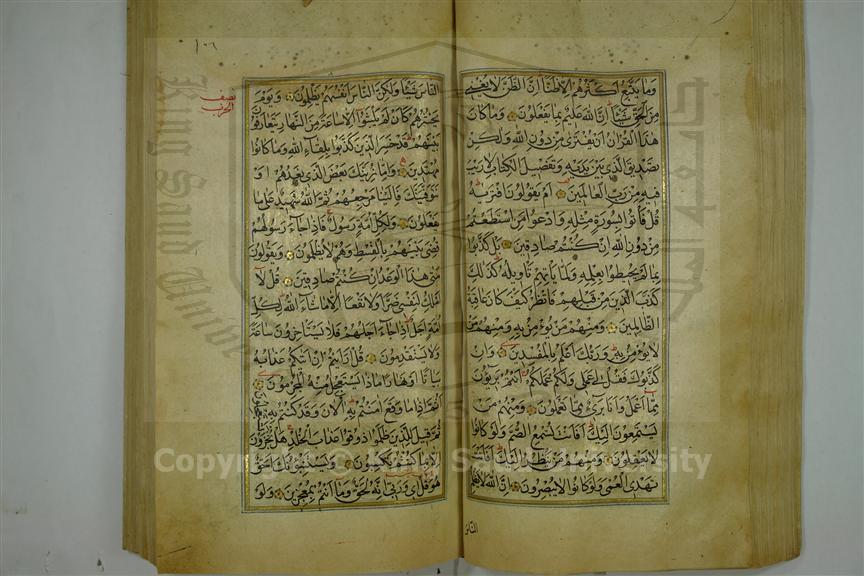 وما يتبع اكثرهم الا ظنا ان الظن لا يغني
من الحق شيئا ان الله عليم بما يفعلون وما كان
هذا القران ان يفترى من دون الله ولكن
تصديق الذي بين يديه وتفصيل الكتاب لا ريب
فيه من رب العالمين ام يقولون افتريه
قل فأتوا بسورة مثله وادعوا من استطعتم
من دون الله ان كنتم صادقين بل كذبوا
بما لم يحيطوا بعلمه ولما يأتهم تأويله كذلك
كذب الذين من قبلهم فانظر كيف كان عاقبة
الظالمين ومنهم من يؤمن به ومنهم من
لا يؤمن به وربك اعلم بالمفسدين وان
كذبوك فقل لي عملي ولكم عملكم انتم بريؤن
مما اعمل وانا بريء مما تعملون ومنهم من
يستمعون اليك افانت تسمع الصم ولو كانوا
لا يعقلون ومنهم من ينظر اليك افانت
تهدي العمي ولو كانوا لا يبصرون ان الله لا يظلم
الناس
١٠٦
نصف
الحزب
الناس شيئا ولكن الناس انفسهم يظلمون ويوم
يحشرهم كان لم يلبثوا الا ساعة من النهار يتعارفون
بينهم قد خسر الذين كذبوا بلقاء الله وما كانوا
مهتدين واما نرينك بعض الذي نعدهم او
نتوفينك فالينا مرجعهم ثم الله شهيد على ما
يفعلون ولكل امة رسول فاذا جاء رسولهم
قضي بينهم بالقسط وهم لا يظلمون ويقولون
متى هذا الوعد ان كنتم صادقين قل لا
املك لنفسي ضرا ولا نفعا الا ما شاء الله لكل
امة اجل اذا جاء اجلهم فلا يستاخرون ساعة
ولا يستقدمون قل ارايتم ان اتيكم عذابه
بياتا او نهارا ماذا يستعجل منه المجرمون
اثم اذا ما وقع امنتم به الان وقد كنتم به
ثم قيل للذين ظلموا ذوقوا عذاب الخلد هل تجزون
الا بما كنتم تكسبون ويستنبؤنك احق
هو قل اي وربي انه لحق وما انتم بمعجزين ولو
Copyright © King Saud University
King Saud University